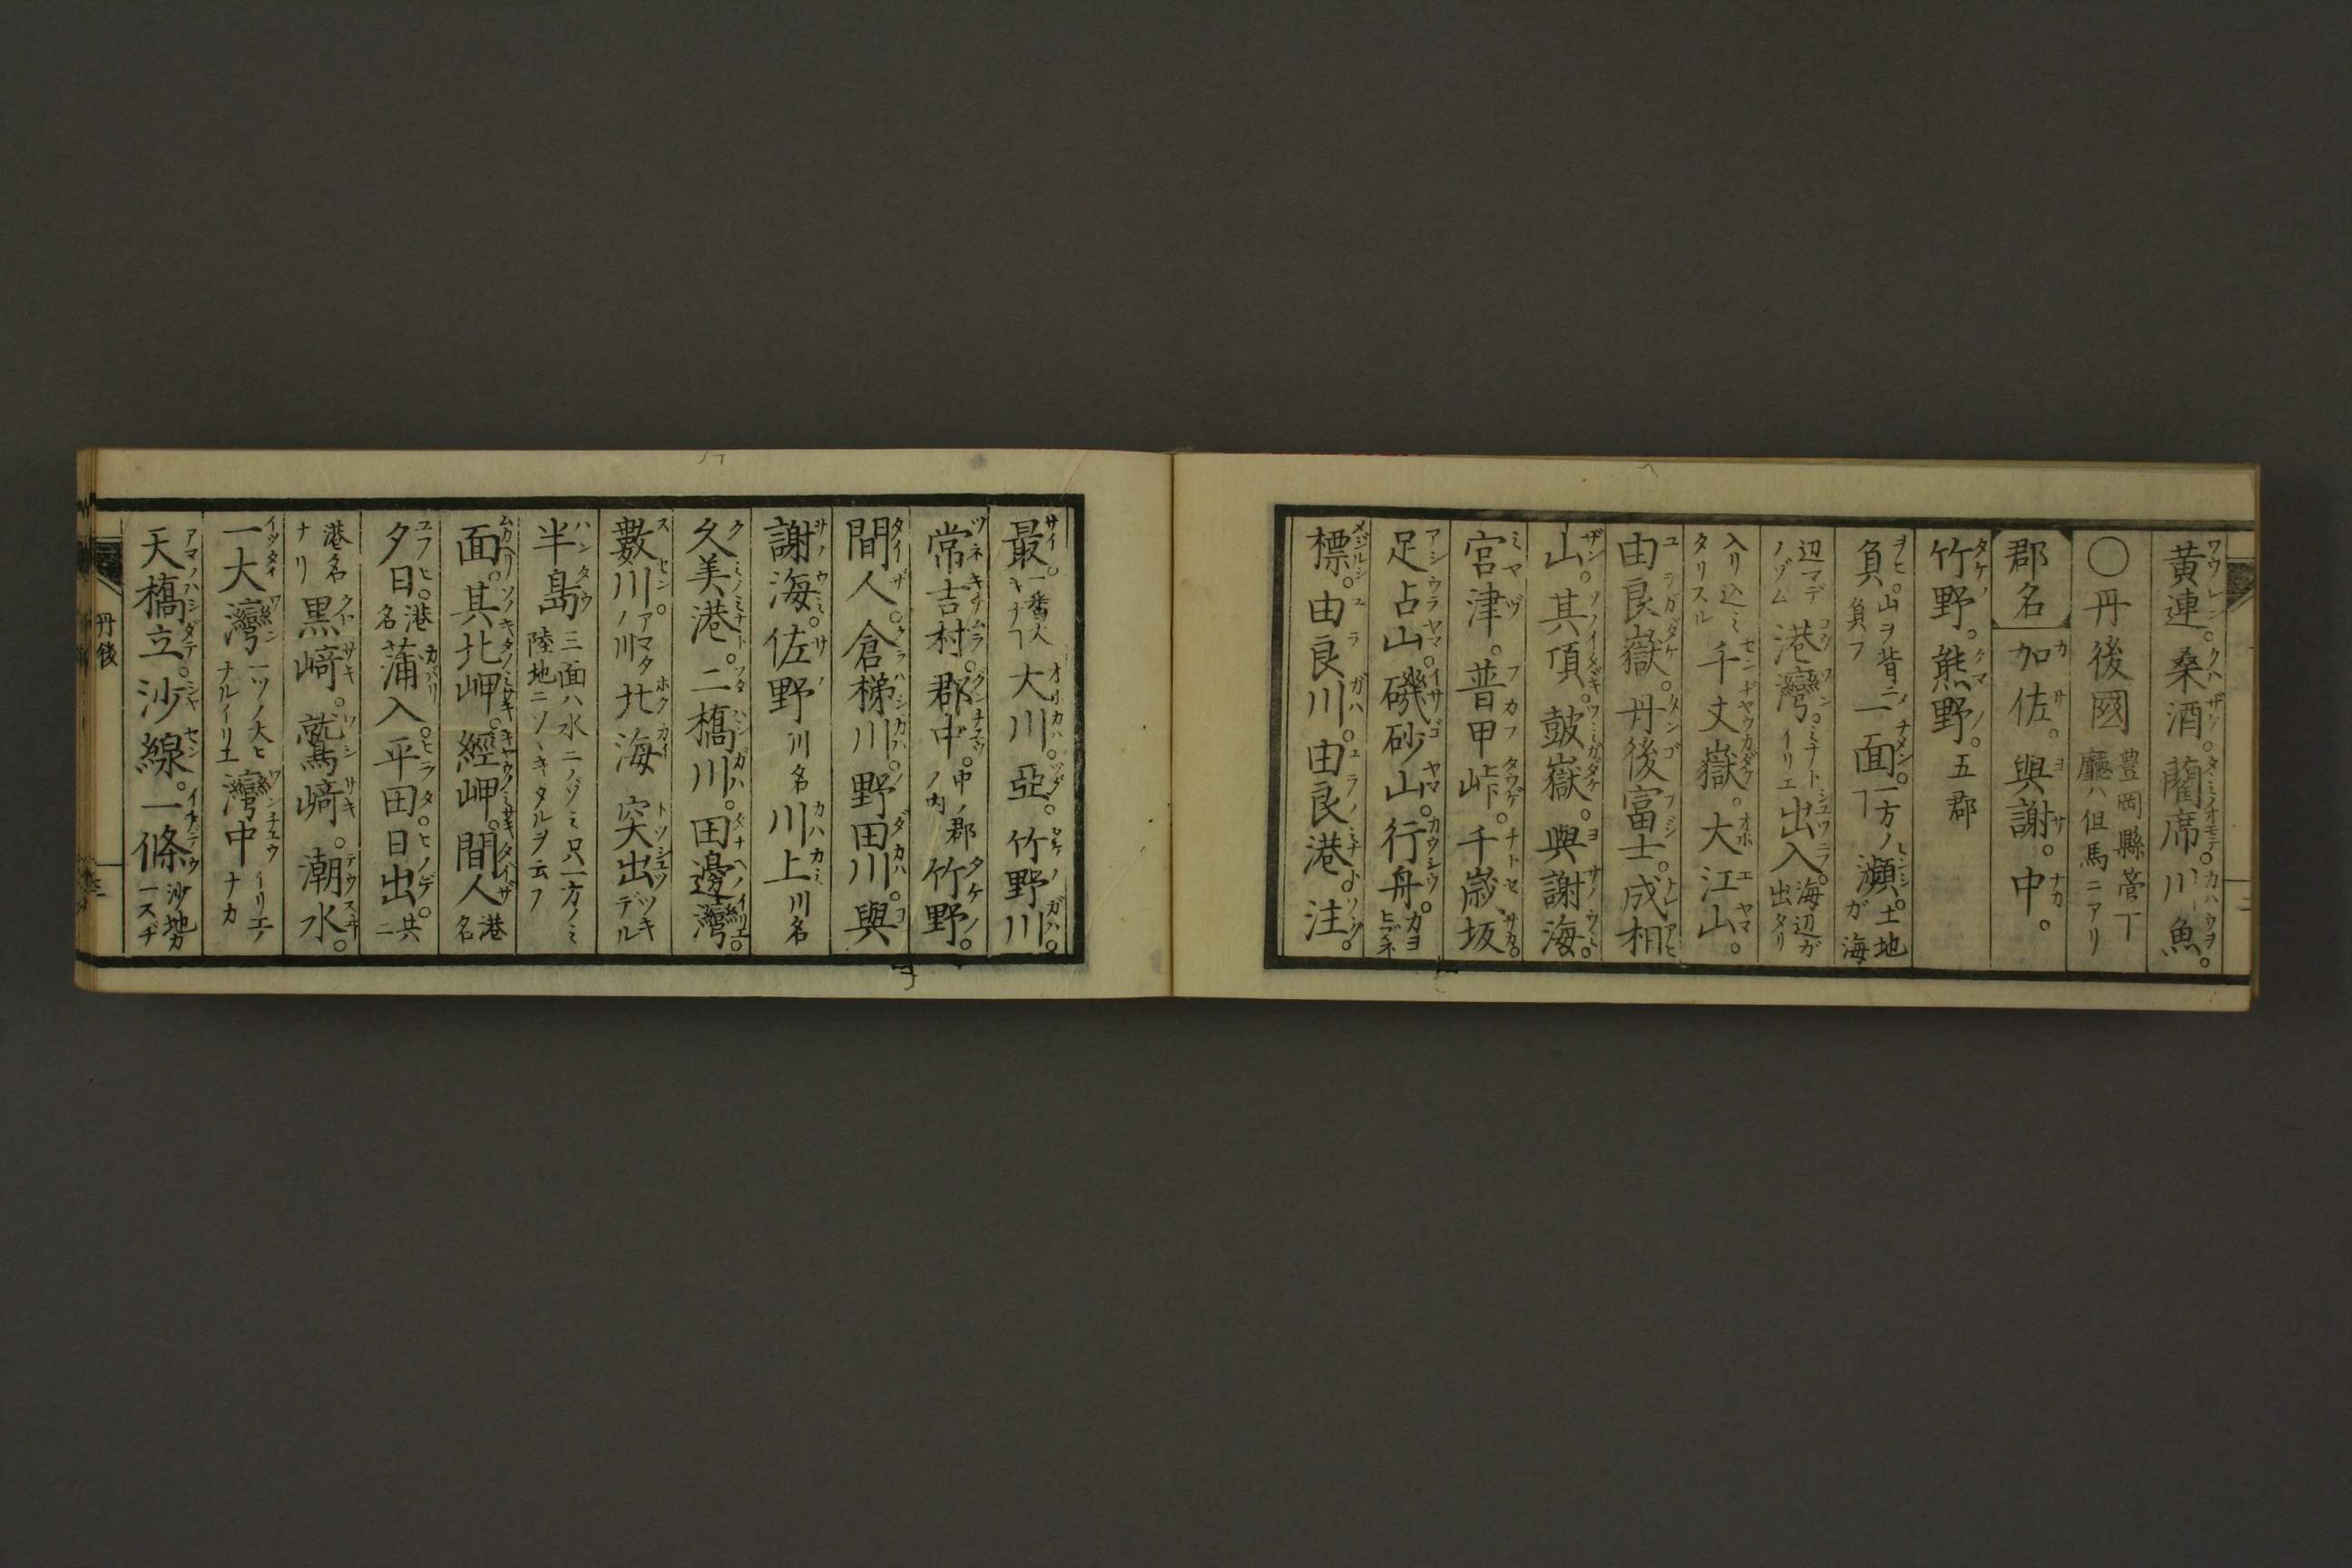 黄連。桑酒。藺席。川魚。
〇丹後國 豊岡縣管丁 廳ハ但馬ニアリ
郡名 加佐。與謝。中。
竹野。熊野。五郡
負。山ヲ背ニ負フ 一面。一方ノ 瀕。土地ガ海
辺マデノゾム 港灣。イリエ 出入。海辺ガ出タリ
入リ込ミタリスル 千丈嶽。大江山。
由良嶽。丹後富士。成相
山。其頂。皷嶽。與謝海。
宮津。普甲峠。千歳坂。
足占山。磯砂山。行舟。カヨヒブネ
標。由良川。由良港。注。
最。一番大キナ 大川。亞。竹野川。
常吉村。郡中。中ノ郡ノ内 竹野。
間人。倉梯川。野田川。與
謝海。佐野 川名 川上 川名
久美港。二橋川。田邊灣。
數川 アマタノ川 北海 突出 ツキデル
半島 三面ハ水ニノゾミ只一方ノミ陸地ニツヾキタルヲ云フ
面。其北岬。經岬。間人 港名
夕日。港名 蒲入。平田。日出。共ニ
港名ナリ 黒﨑。鷲﨑。潮水。
一大灣 一ツノ大ヒナルイリエ 灣中 イリエノナカ
天橋立。沙線。一條 沙地ガ一スヂ
丹後